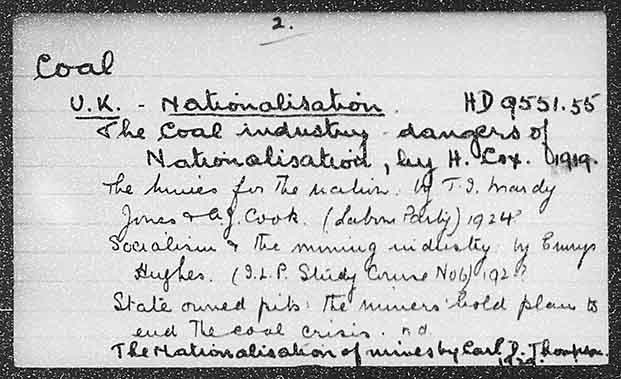 2.
Coal
U.K. - Nationalisation. HD 9551.55
The Coal industry - dangers of
Nationalisation, by H. Cox. 1919.
The mines for the nation. by T. I. Mardy
Jones & A. J. Cook. (Labour Party) 1924
Socialism & the mining industry by Emrys
Hughes. (I.L.P. Study Course No 6) 192?
State owned pits: the miners' bold plan to
end the coal crisis. n.d.
The Nationalisation of mines by Carl D. Thompson.